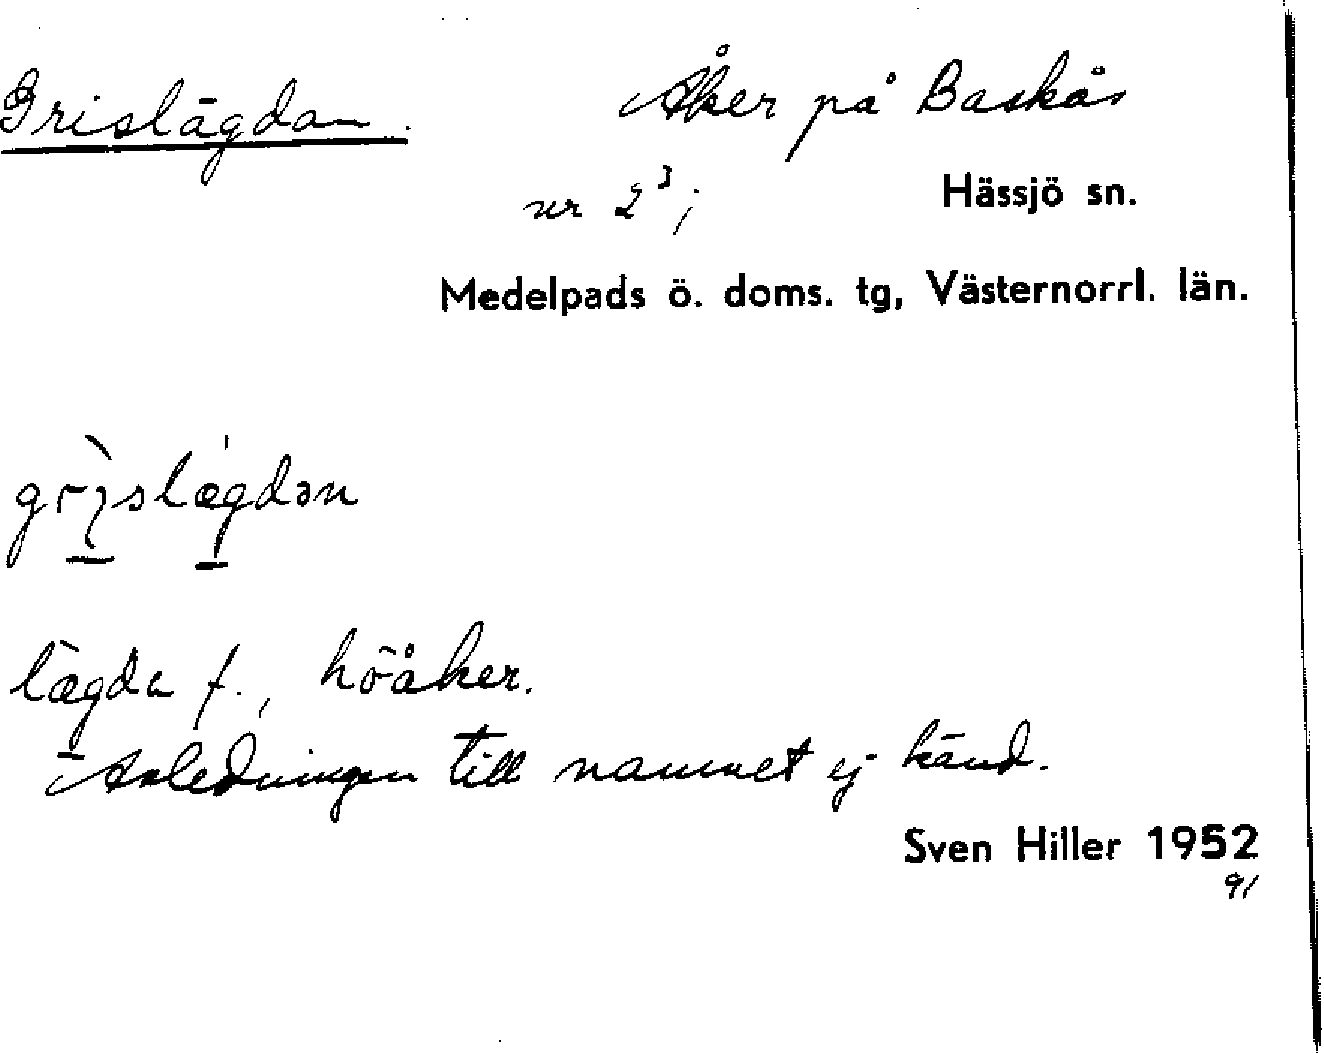 Grislägdan. Åker på Baskås
nr 2³; Hässjö sn.
Medelpads ö. doms. tg, Västernorrl. län.
grı̀slægdən
lægda f., höåker.
Anledningen till namnet ej känd.
Sven Hiller 1952
91